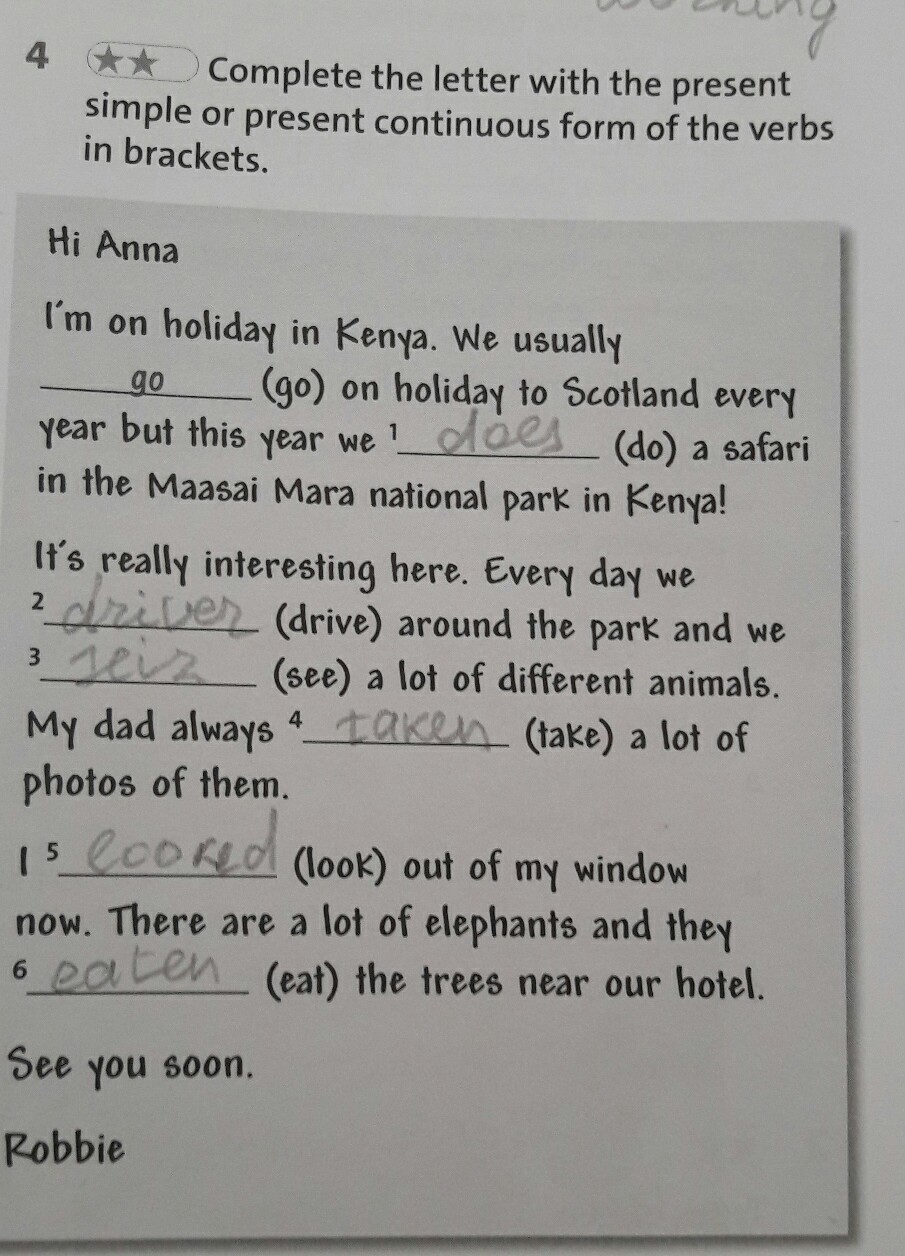 4 ★★ Complete the letter with the present
simple or present continuous form of the verbs
in brackets.
Hi Anna
I'm on holiday in Kenya. We usually
go (go) on holiday to Scotland every
year but this year we 1 does (do) a safari
in the Maasai Mara national park in Kenya!
It's really interesting here. Every day we
2 driver (drive) around the park and we
3 (see) a lot of different animals.
My dad always 4 taken (take) a lot of
photos of them.
I 5 looked (look) out of my window
now. There are a lot of elephants and they
6 eaten (eat) the trees near our hotel.
See you soon.
Robbie